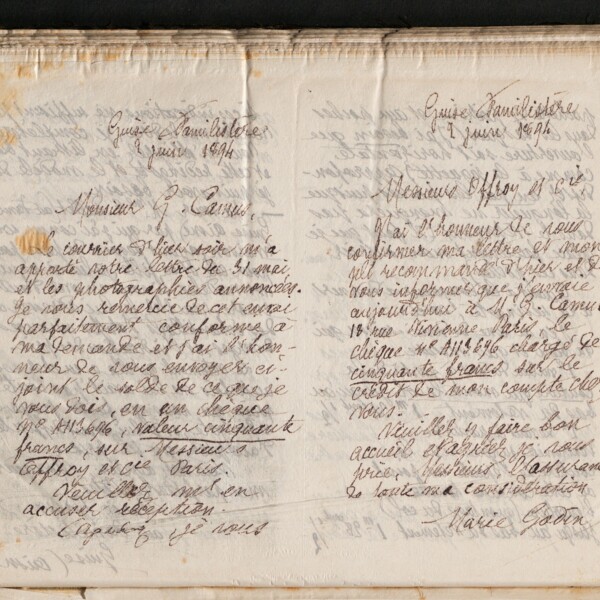 Guise Familistère
2 juin 1894
Monsieur G. Camus,
Le courrier d'hier soir m'a
apporté votre lettre du 31 mai,
et les photographies annoncées.
Je vous remercie de cet envoi
parfaitement conforme à
ma demande et j'ai l'hon-
neur de vous envoyer ci-
joint le solde de ce que je
vous dois, en un chèque
n° A113696, valeur cinquante
francs, sur Messieurs
Offroy et Cie Paris.
Veuillez m'en
accuser réception.
je vous
Guise Familistère
2 juin 1894
Messieurs Offroy et Cie,
J'ai l'honneur de vous
confirmer ma lettre et mon
pli recommandé d'hier et de
vous informer que j'envoie
aujourd'hui à M. G. Camus
rue Vivienne Paris, le
chèque n° A113696 chargé de
cinquante francs sur le
crédit de mon compte chez
vous.
Veuillez y faire bon
accueil et agréez je vous
prie, Messieurs l'assurance
de toute ma considération
Marie Godin